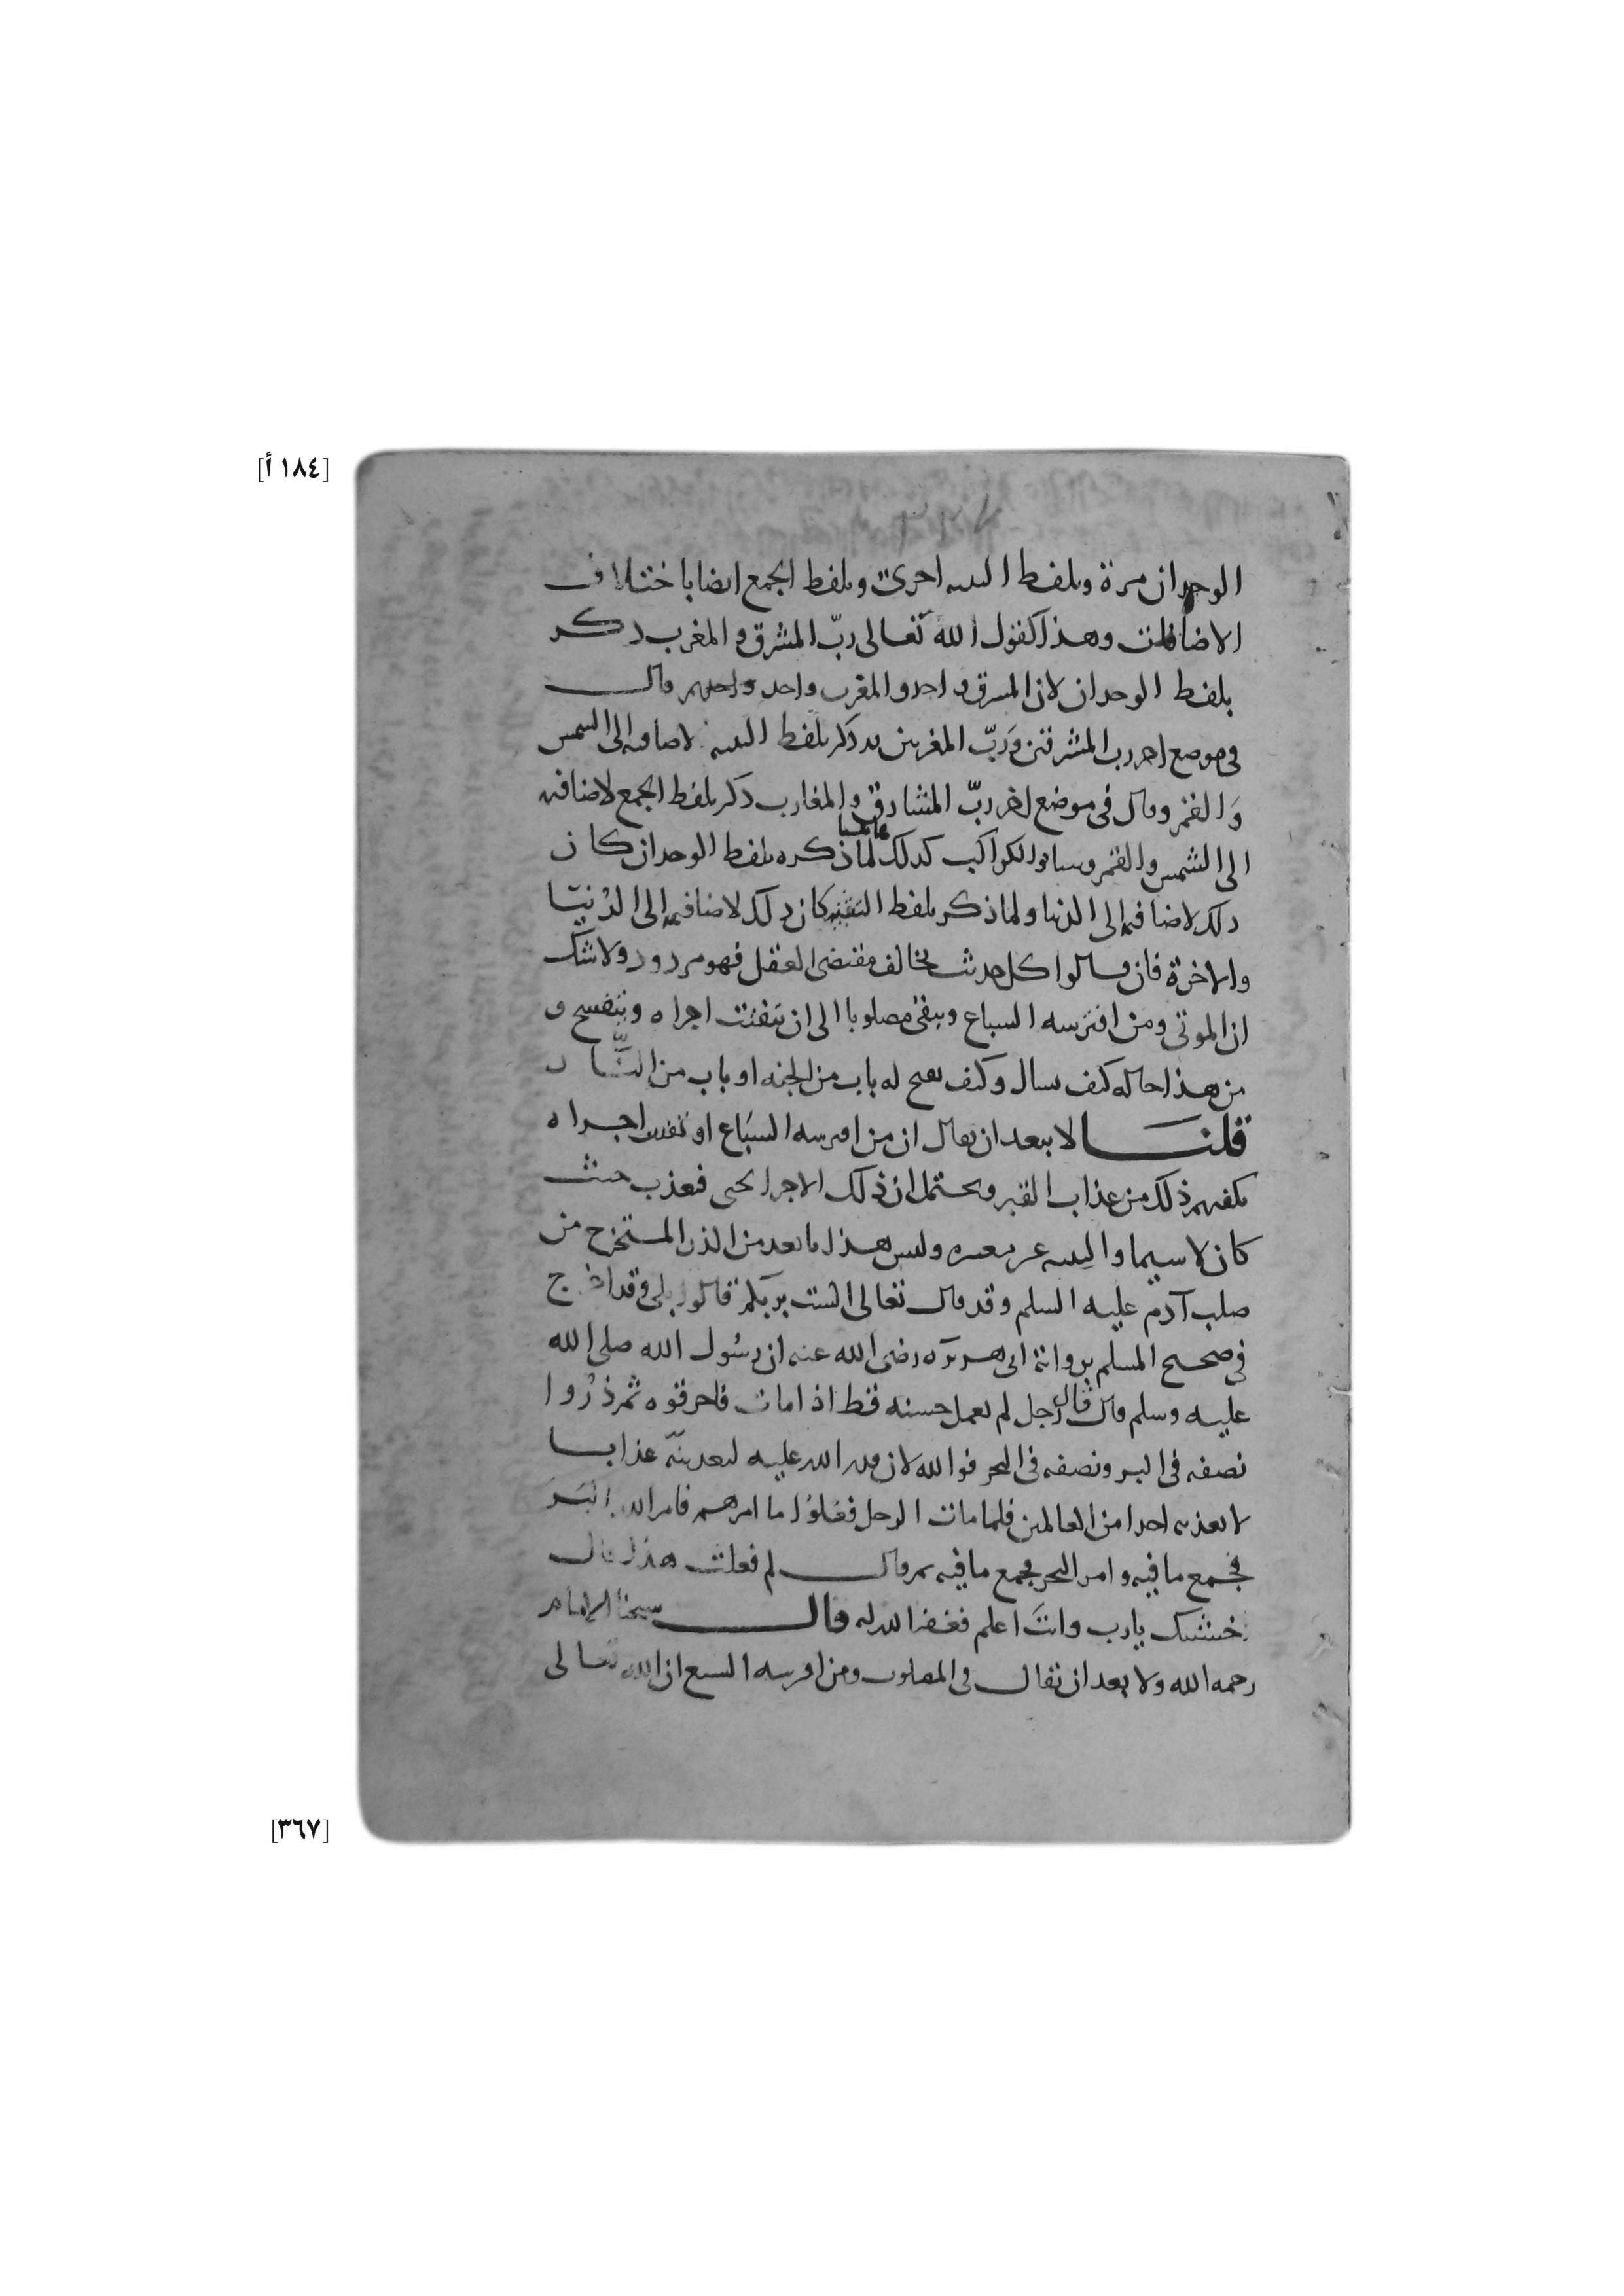 [١٨٤ أ]
الوحدان مرة وبلفظ التثنية اخرى وبلفظ الجمع ايضا باختلاف
الاضافات وهذا كقول الله تعالى ربّ المشرق والمغرب ذكر
بلفظ الوحدان لان المشرق واحد والمغرب واحد وقال
في موضع اخر رب المشرقين وَربّ المغربين ذكر بلفظ التثنية لاضافته الى الشمس
وَالقمر وقال في موضع اخر ربّ المشارق والمغارب ذكر بلفظ الجمع لاضافته
الى الشمس والقمر وسائر الكواكب كذلك لما ذكره بلفظ الوحدان كان
ذلك لاضافته الى الدنيا ولما ذكر بلفظ التثنية كان ذلك لاضافته الى الدُنيَا
والاخرة فان قالوا كل حديث يخالف مقتضى العقل فهو مردود ولا شك
ان الموتى ومن افترسه السباع ويبقى مصلوبا الى ان يتفتت اجزاه ويتفسح و
من هذا حاله كيف يسال وكيف يفتح له باب من الجنه او باب من النَّار
قلنا لا يبعد ان يقال ان من افترسه السبَاع او تفتت اجزاه
يكفيهم ذلك من عذاب القبر ويحتمل ان ذلك الاجزا يحيى فيعذب حيث
كان لاسيما والبنية غير معتبره وليس هذا بابعد من الذر المستخرج من
صلب آدم عليه السلم وقد قال تعالى الست بربكم قالوا بلى وقد اخرج
في صحيح المسلم برواية ابى هريرَه رضى الله عنه ان رسُول الله صلى الله
عليه وسلم قال قال رجل لم يعمل حسنه قط اذا مات فاحرقوه ثم ذرُوا
نصفه في البر ونصفه في البحر فوالله لان قدر الله عليه ليعذبنّه عذابا
لا يعذبه احدا من العالمين فلما مات الرجل فعَلوُا ما امرهم فامر الله البَر
فجمع ما فيه وامر البحر فجمع ما فيه ثم قال لم فعلت هذا قال
خشيتك يارب وانتَ اعلم فغفر الله له قال شيخنا الإمام
رحمه الله ولا يبعد ان يقال في المصلوب ومن افترسه السبع ان الله تعالى
[٣٦٧]